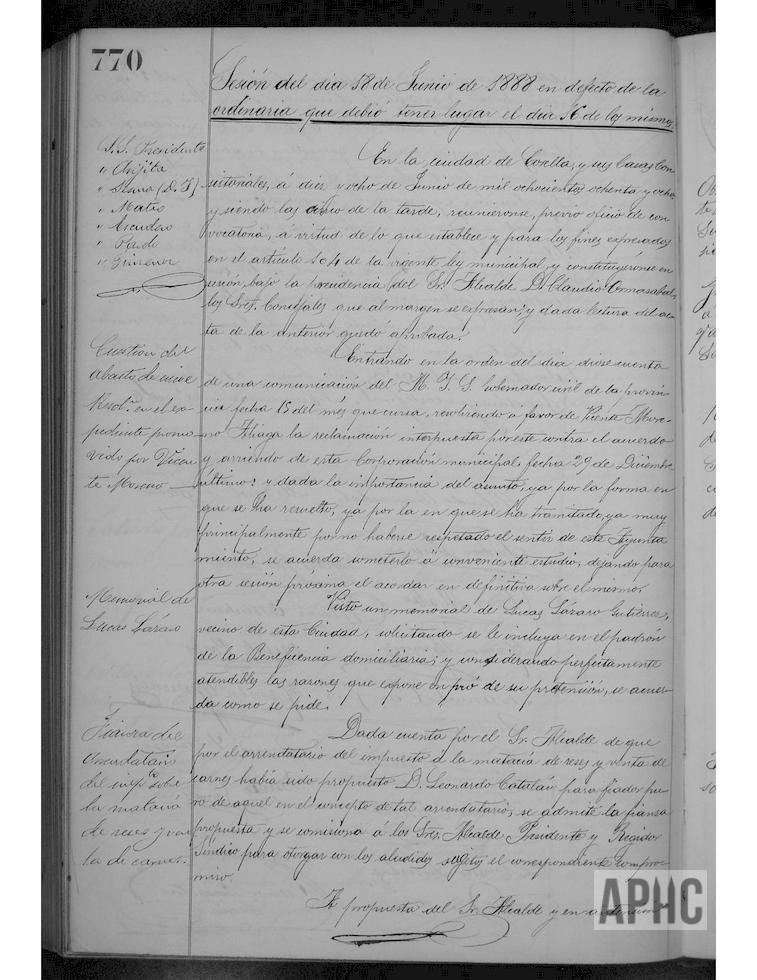 770
Sesión del dia 18 de Junio de 1888 en defecto de la
ordinaria que debió tener lugar el dia 16 de los mismos.
S.S. Presidente
" Anjita
" Serna (D. J.)
" Mateo
" Escudero
" Pardo
" Gimenez
En la ciudad de Corella, y sus Casas Con
sistoriales, á diez y ocho de Junio de mil ochocientos ochenta y ocho
y siendo las cinco de la tarde, reunieronse, previo oficio de con
vocatoria, á virtud de lo que establece y para los fines expresados
en el artículo 104 de la vigente ley municipal, y constituyéronse en
sesión, bajo la presidencia del Sr. Alcalde D. Claudio
los Sres. Concejales que al margen se expresan; y dada lectura del ac
ta de la anterior quedo aprobada.
Cuestion del
abasto de nieve
Resolⁿ en el ex
pediente promo
vido por Vicen
te Moreno
Entrando en la orden del dia diose cuenta
de una comunicación del M. I. S. Gobernador civil de la provin
cia fecha 15 del mes que cursa, resolviendo á favor de Vicente More
no Aliaga la reclamación interpuesta por este contra el acuerdo
y arriendo de esta Corporación municipal, fecha 29 de Diciembre
último: y dada la importancia del asunto, ya por la forma en
que se ha resuelto, ya por la en que se ha tramitado, ya muy
principalmente por no haberse respetado el sentir de este Ayunta
miento, se acuerda someterlo á conveniente estudio, dejando para
otra sesión próxima el acordar en definitiva sobre el mismo.
Memorial de
Lucas Lázaro
Visto un memorial de Lucas Lázaro Gutierrez,
vecino de esta Ciudad, solicitando se le incluya en el padrón
de la Beneficencia domiciliaria; y considerando perfectamente
atendibles las razones que expone en pró de su pretensión, se acuer
da como se pide.
Fianza del
arrendatario
del impᵗᵒ sobre
la matanza
de reses y ven
ta de carnes.
Dada cuenta por el Sr. Alcalde de que
por el arrendatario del impuesto á la matacia de reses y venta de
carnes habia sido propuesto D. Leonardo Catalán para fiador pu
ro de aquel en el concepto de tal arrendatario, se admite la fianza
propuesta y se comisiona á los Sres. Alcalde Presidente y Regidor
Sindico para otorgar con los aludidos sujetos el correspondiente compro
miso.
A propuesta del Sr. Alcalde y en atención
APHC